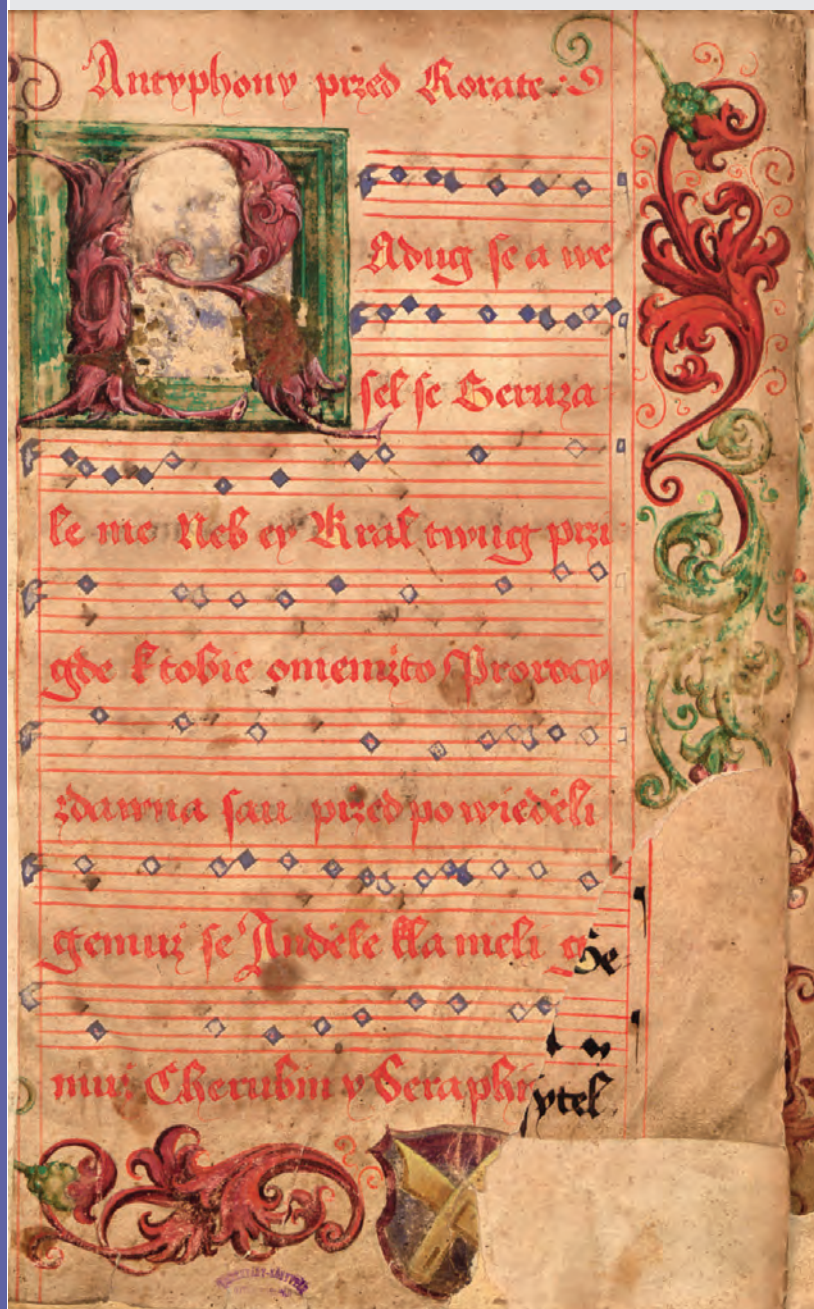 Antyphony przed Rorate
RAdug se a we
sel se Geruza
le me Neb ey Kral twug przi
gde k tobie omemžto Prorocy
zdawna sau przedpowiedeli
gemuž se Andele kla meli ge
muž Cherubin y Seraphi
ytel